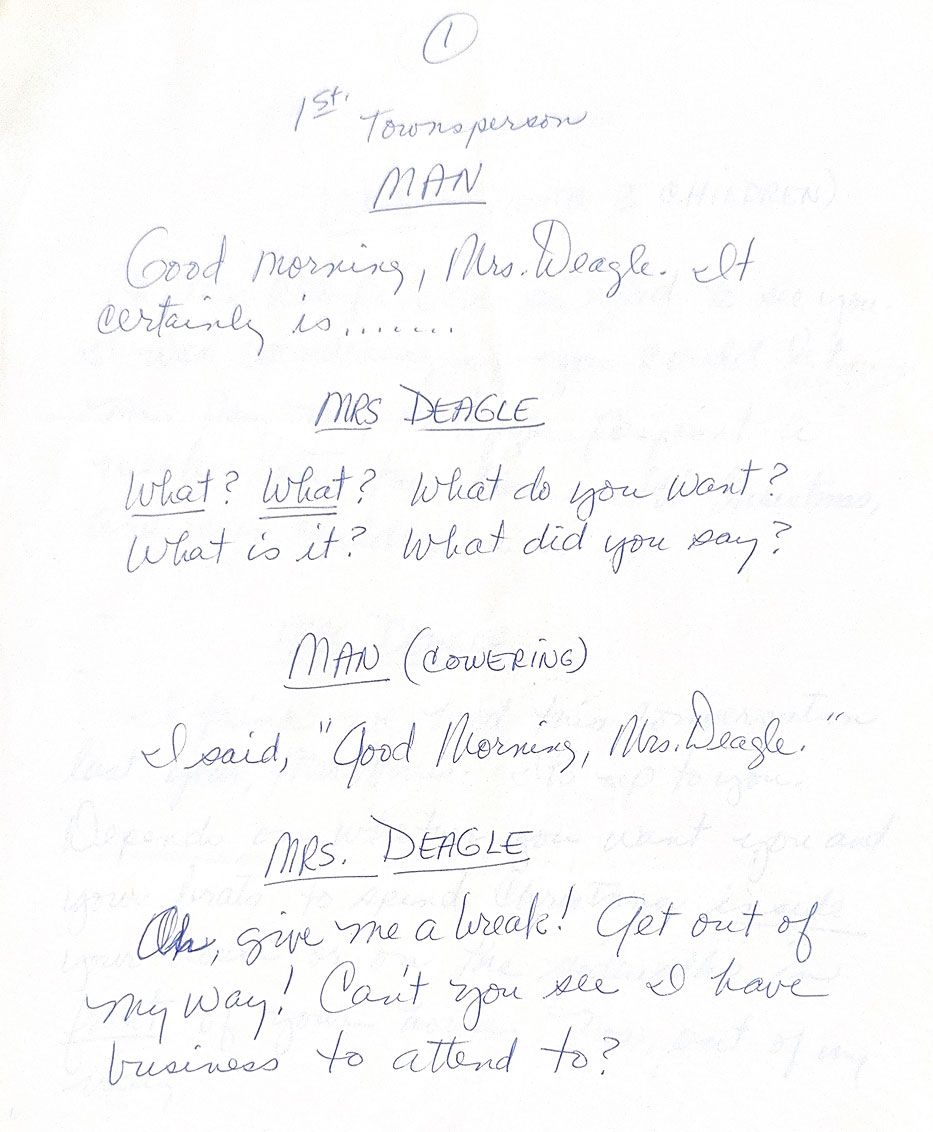 1
1st. Townsperson
MAN
Good morning, Mrs. Deagle. It
certainly is.......
MRS DEAGLE
What? What? What do you want?
What is it? What did you say?
MAN (COWERING)
I said, "Good Morning, Mrs. Deagle."
MRS. DEAGLE
Oh, give me a break! Get out of
my way! Can't you see I have
business to attend to?